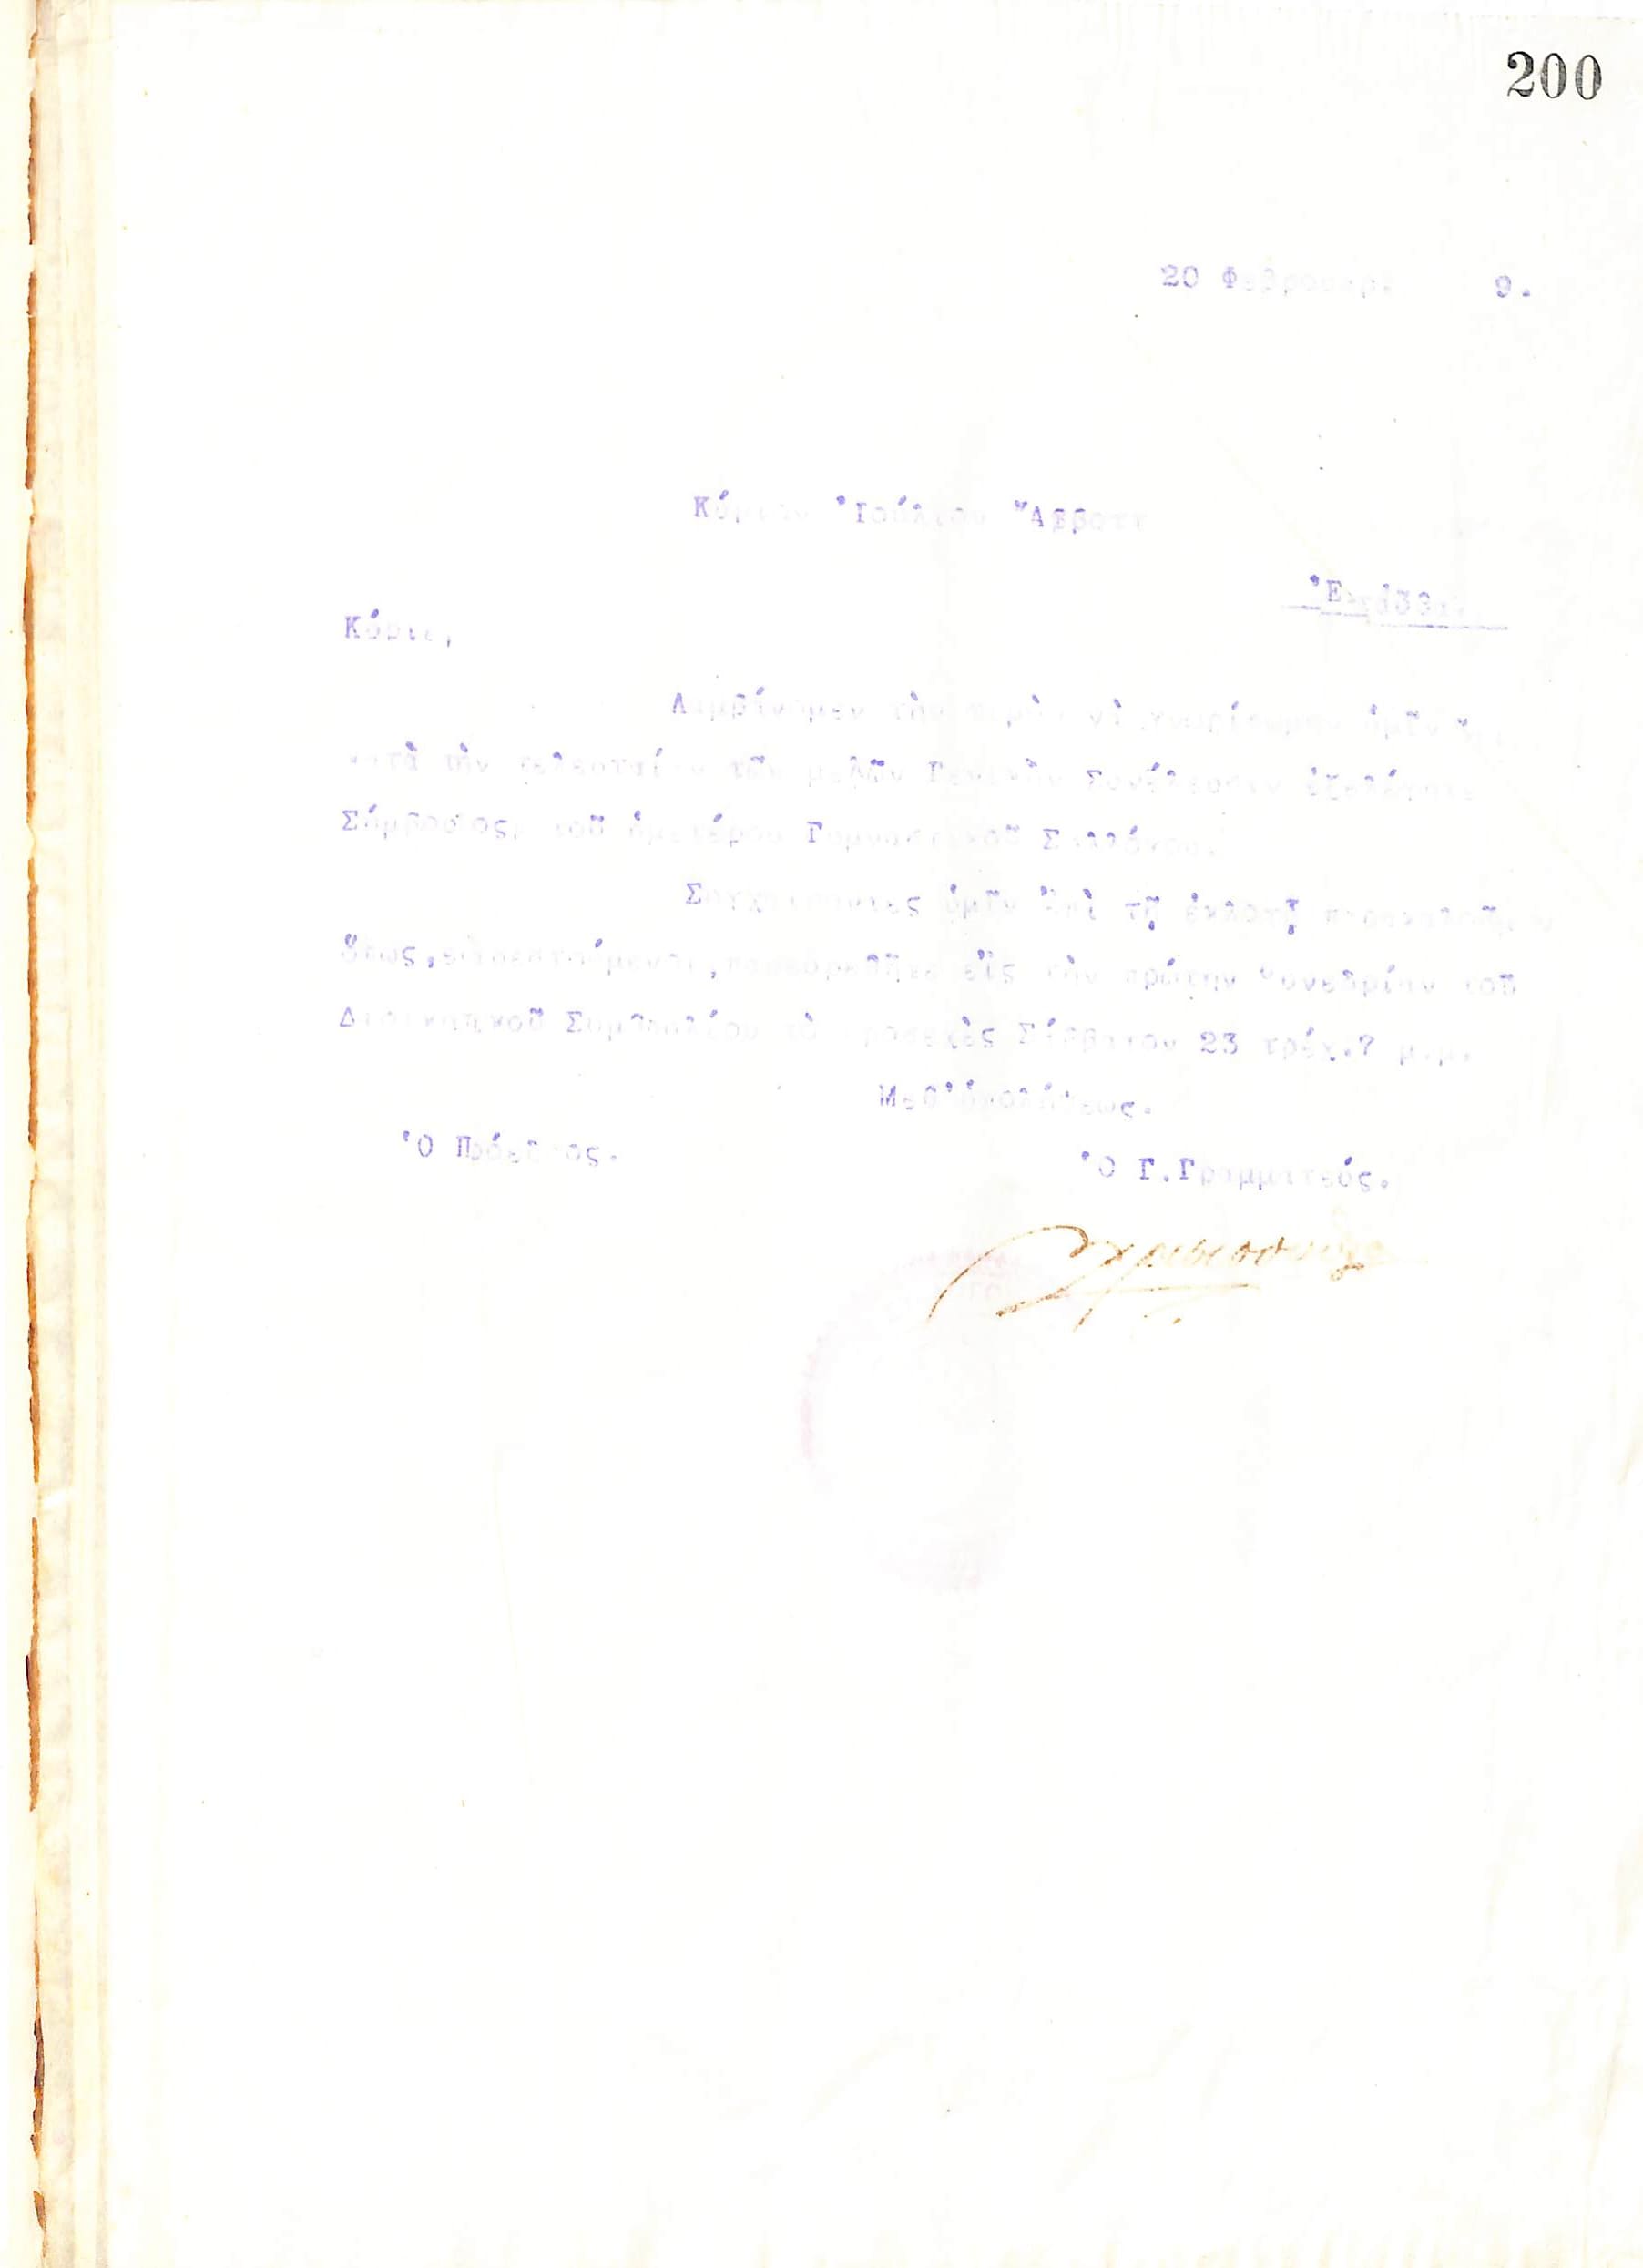 200
20 Φεβρουαρί 9.
Κύριον Ἰούλιον Ἄββοττ
Ἐνταῦθα
Κύριε,
Λαμβάνομεν τὴν τιμὴν νὰ γνωρίσωμεν ὑμῖν ὅτι
κατὰ τὴν τελευταίαν τῶν μελῶν Γενικὴν Συνέλευσιν ἐξελέγητε
Σύμβουλος τοῦ ἡμετέρου Γυμναστικοῦ Συλλόγου.
Συγχαίροντες ὑμῖν ἐπὶ τῇ ἐκλογῇ παρακαλοῦμεν
ὅπως, εὐαρεστούμενοι, παρευρεθῆτε εἰς τὴν πρώτην συνεδρίαν τοῦ
Διοικητικοῦ Συμβουλίου τὸ προσεχὲς Σάββατον 23 τρέχ. 7 μ.μ.
Μεθ' ὑπολήψεως.
Ὁ Πρόεδρος.
Ὁ Γ.Γραμματεύς.